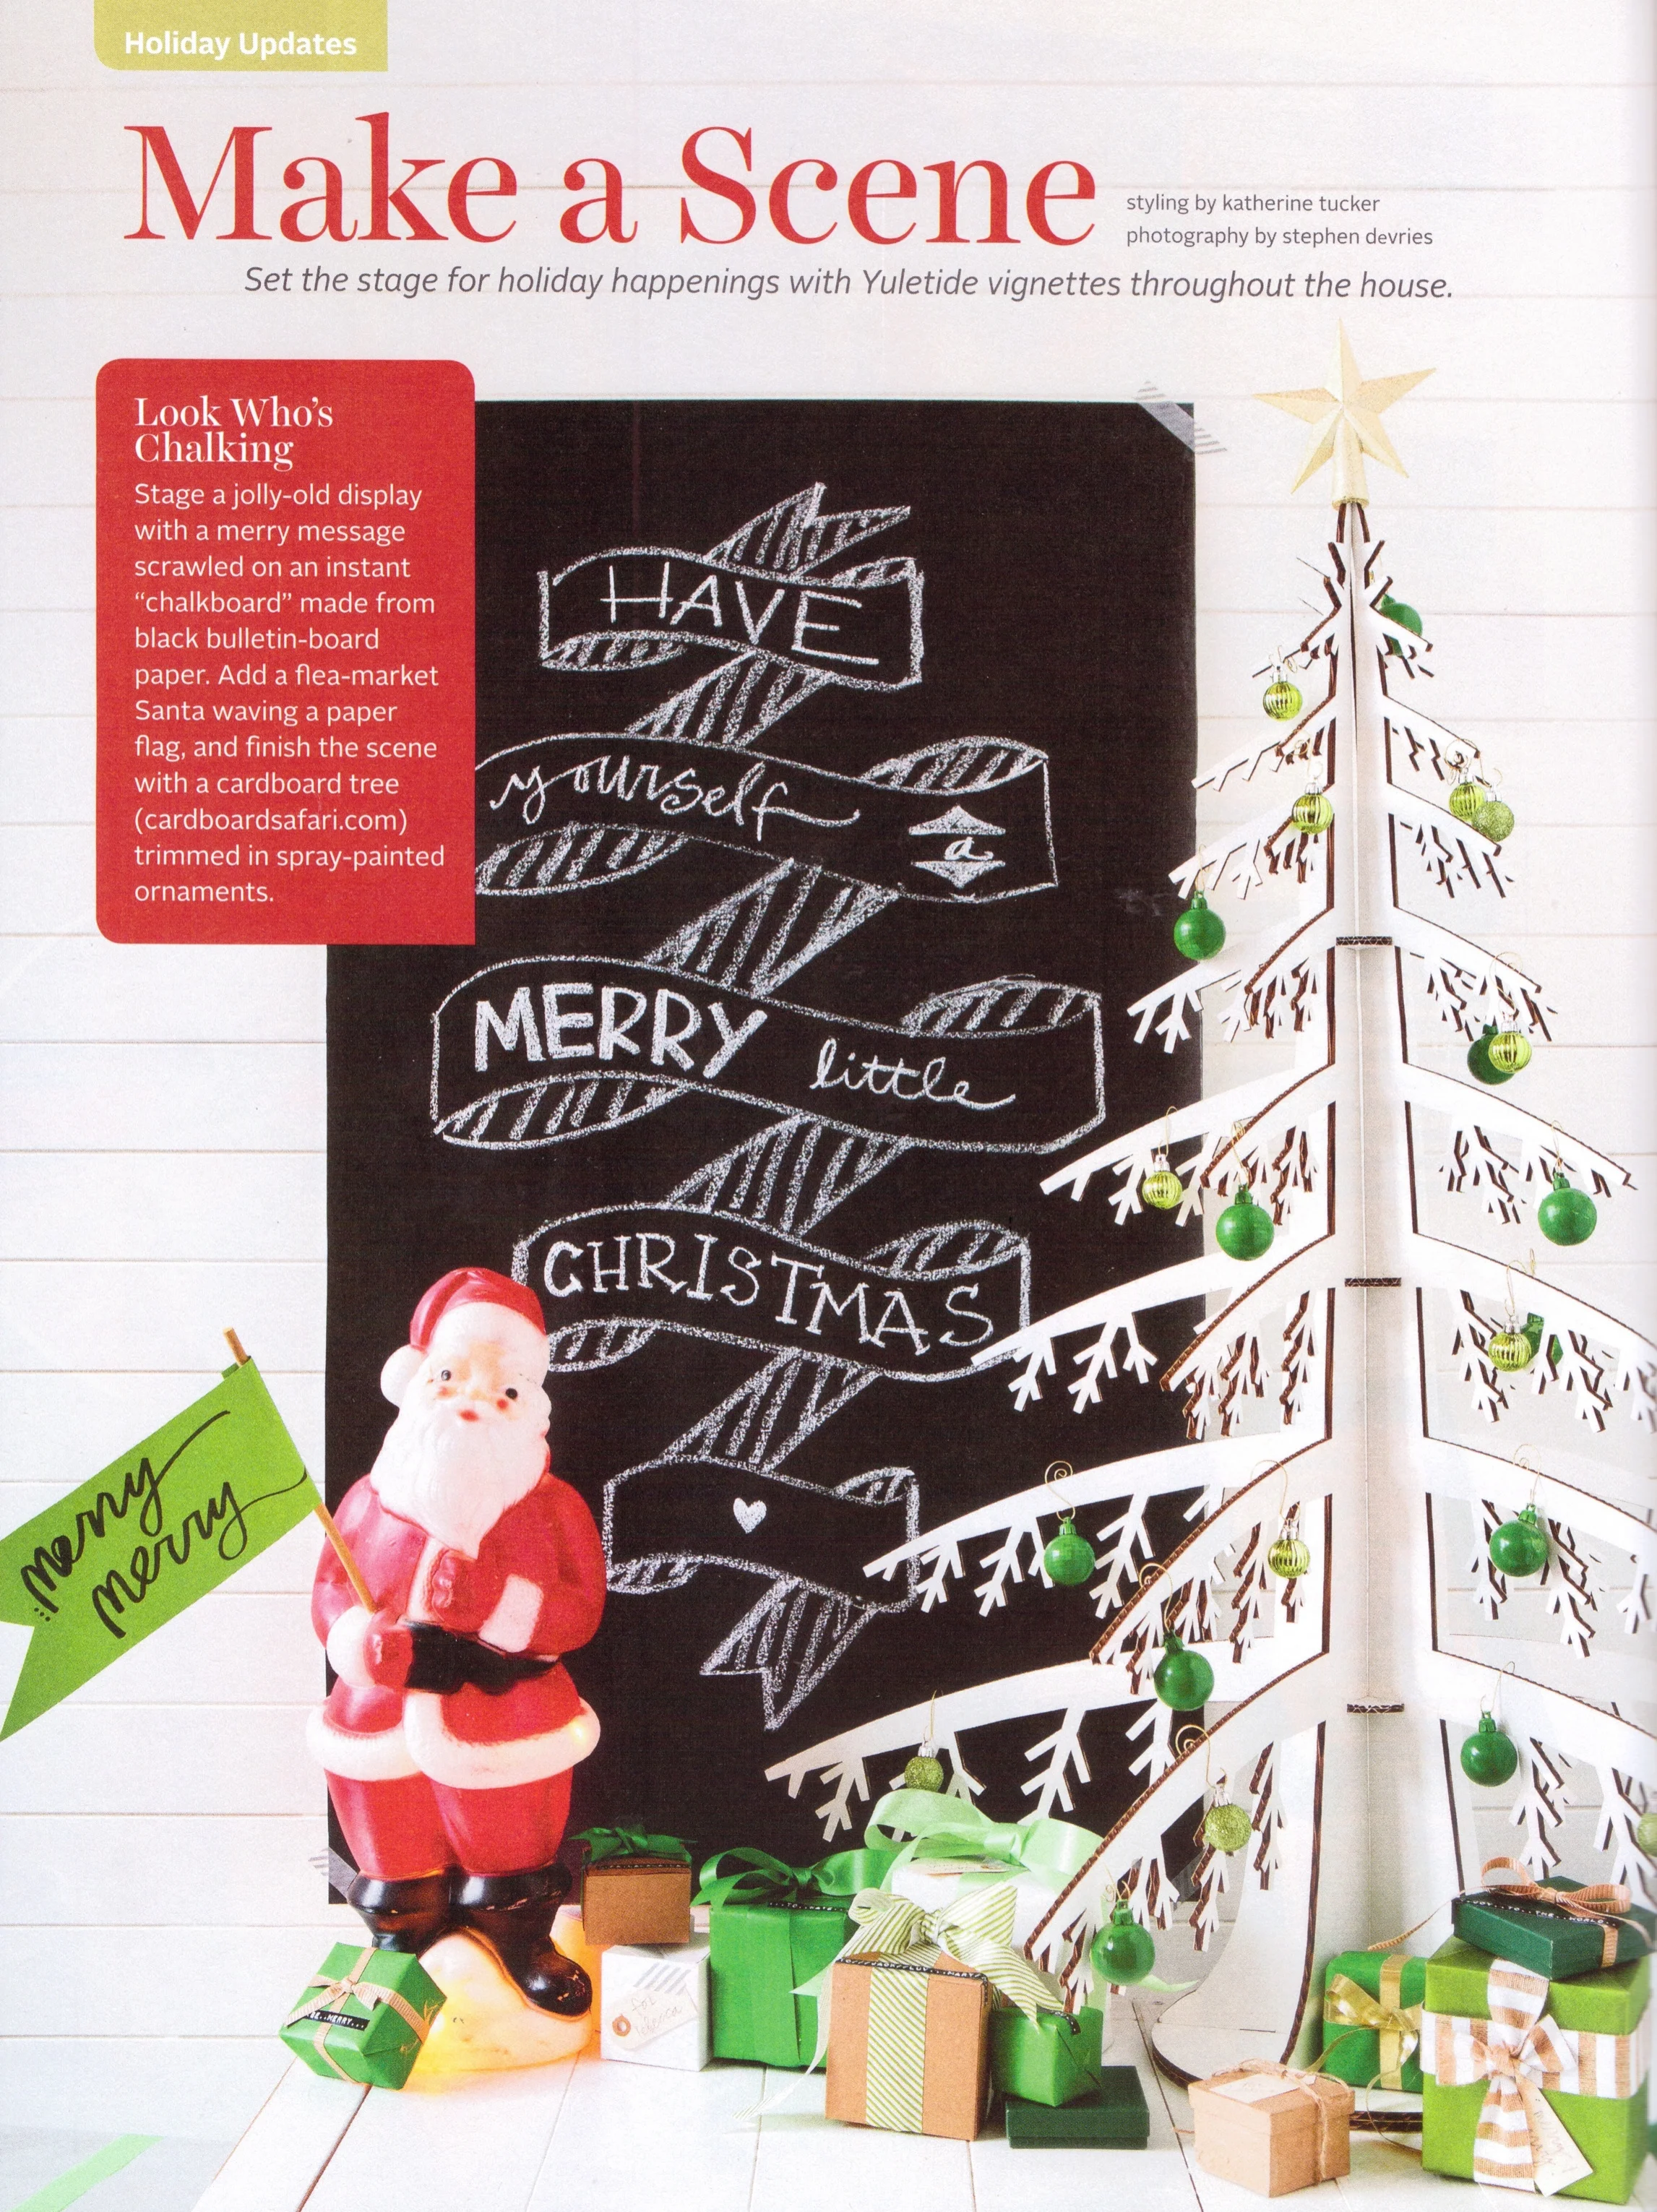 Holiday Updates
Make a Scene
styling by katherine tucker
photography by stephen devries
Set the stage for holiday happenings with Yuletide vignettes throughout the house.
Look Who's
Chalking
Stage a jolly-old display
with a merry message
scrawled on an instant
“chalkboard” made from
black bulletin-board
paper. Add a flea-market
Santa waving a paper
flag, and finish the scene
with a cardboard tree
(cardboardsafari.com)
trimmed in spray-painted
ornaments.
HAVE
yourself a
MERRY little
CHRISTMAS
merry
merry
for